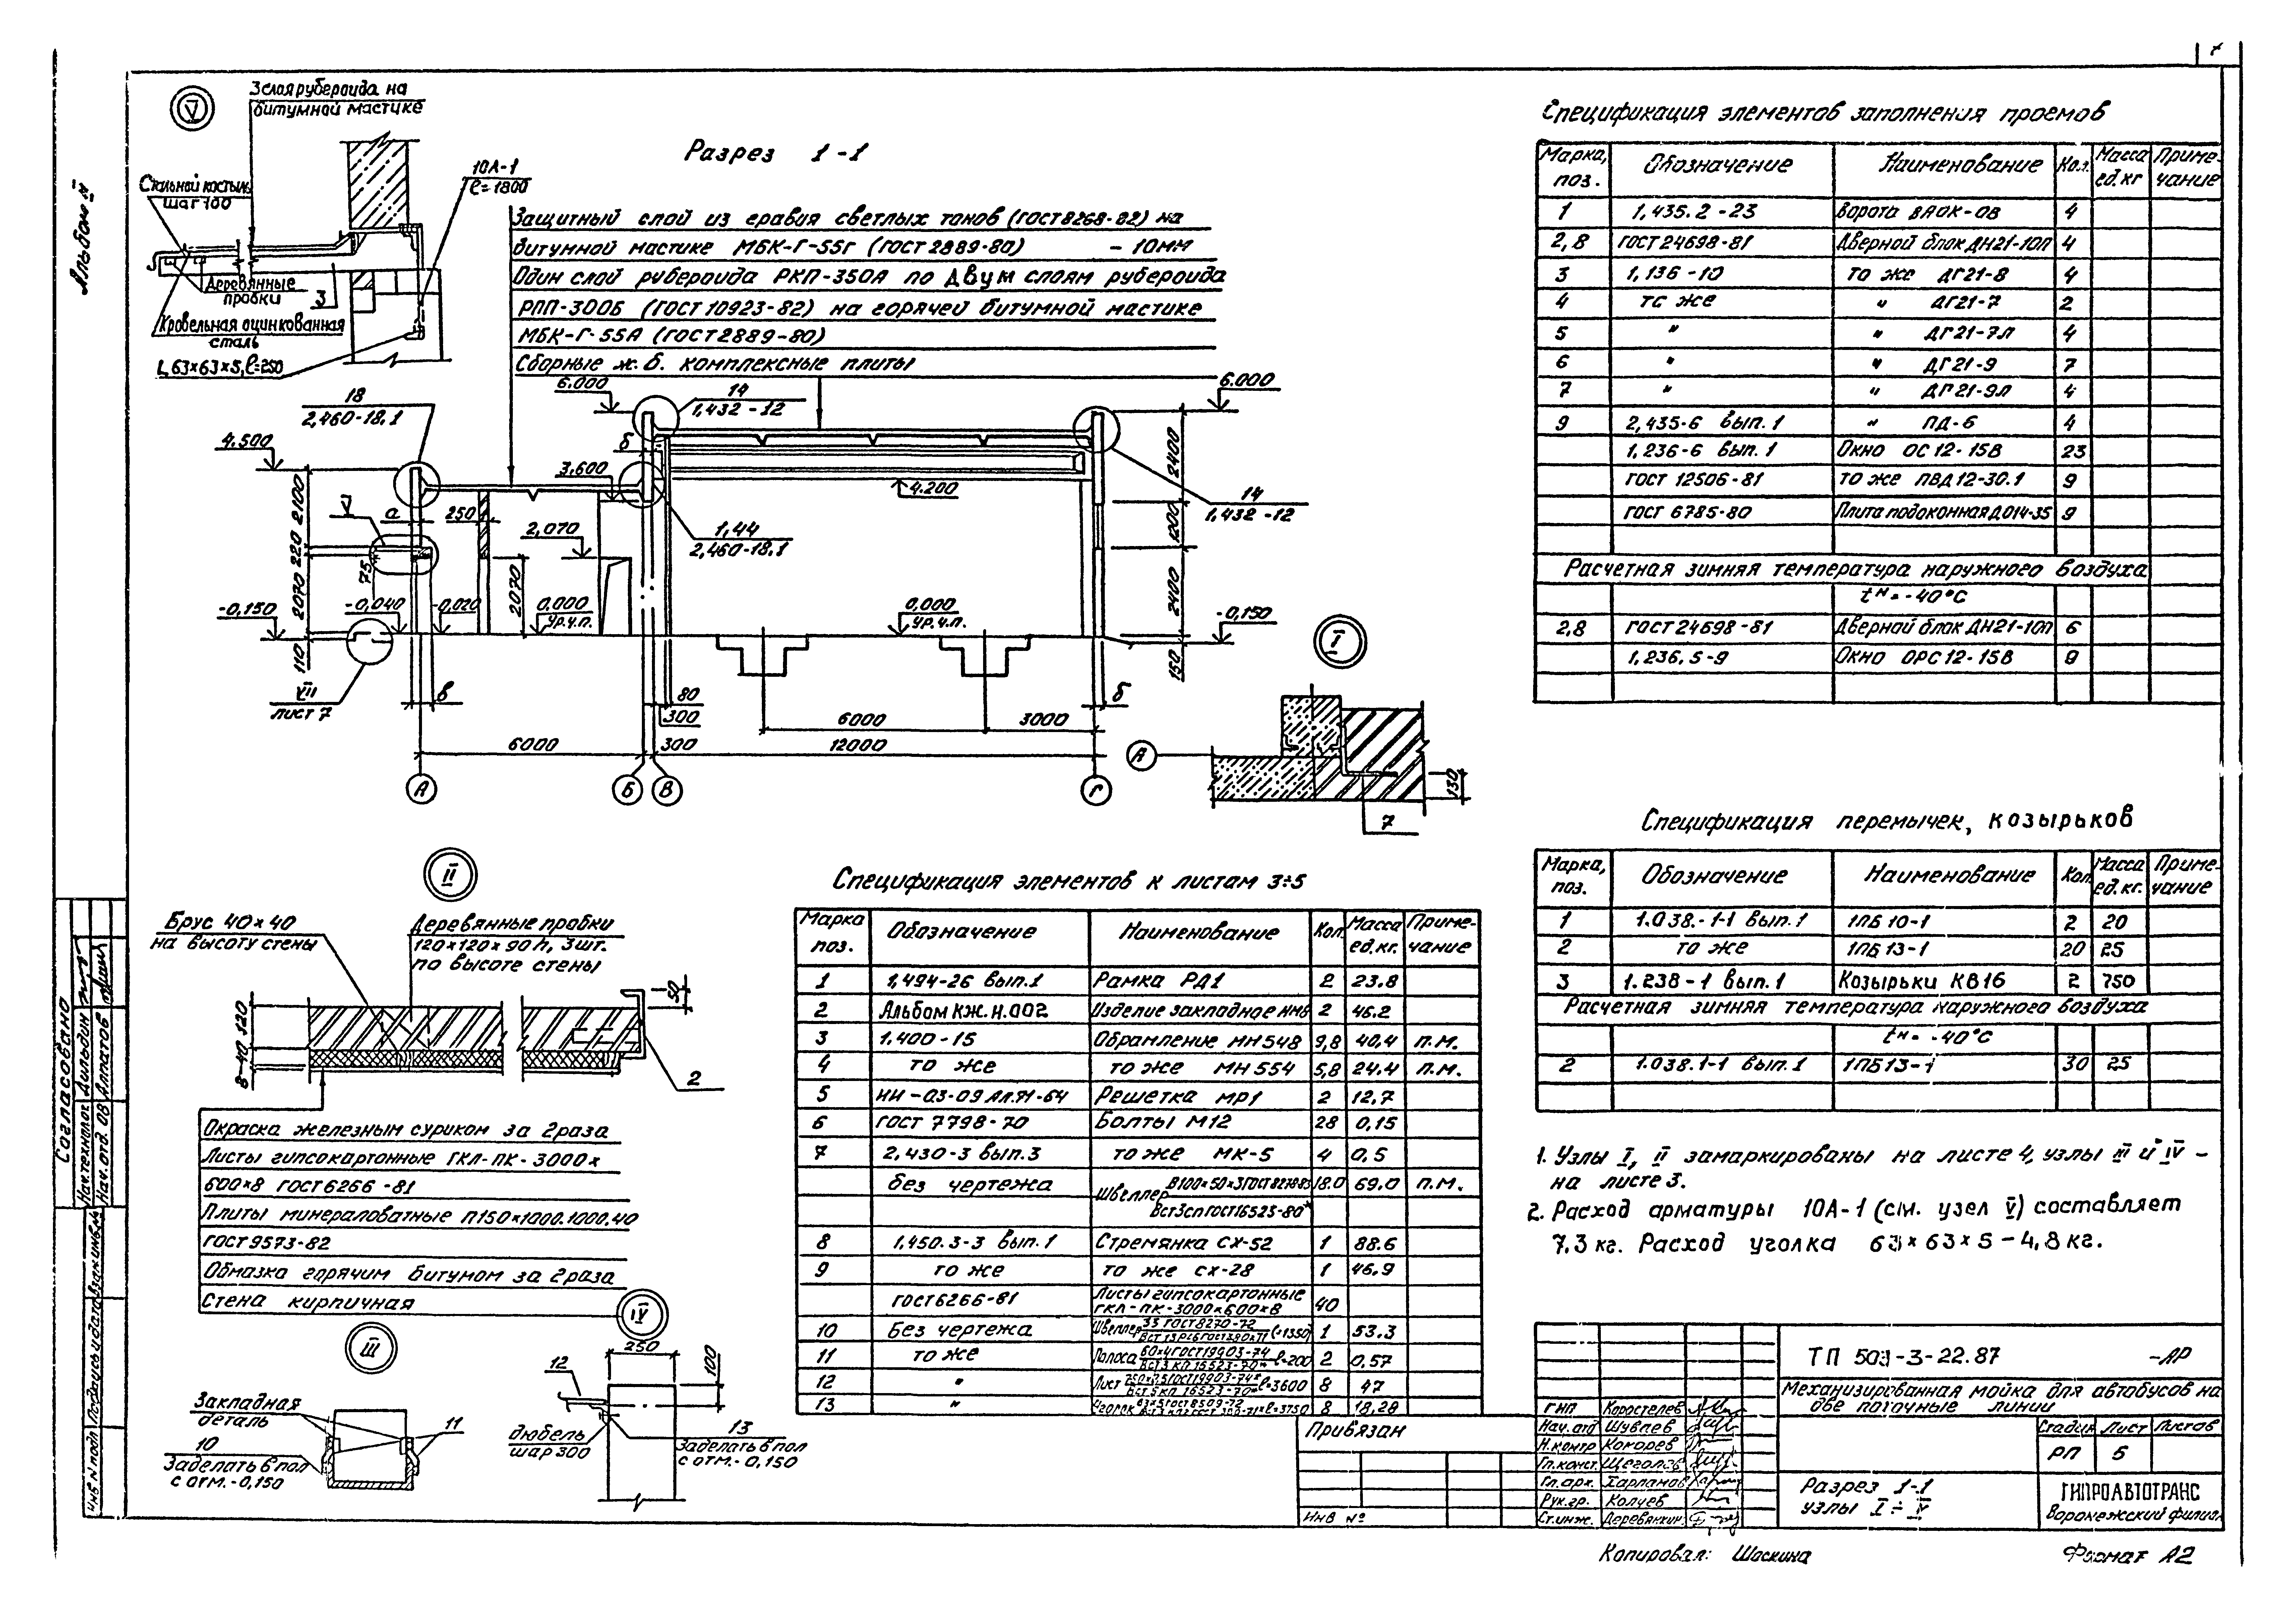 7
Альбом II
V
3 слоя рубероида на
битумной мастике
Стальной костыль
шаг 100
10А-1
ℓ=1800
Деревянные
пробки
3
Кровельная оцинкованная
сталь
L 63×63×5, ℓ=250
Разрез 1-1
Защитный слой из гравия светлых тонов (ГОСТ 8268-82) на
битумной мастике МБК-Г-55г (ГОСТ 2889-80) - 10мм
Один слой рубероида РКП-350А по двум слоям рубероида
РПП-300Б (ГОСТ 10923-82) на горячей битумной мастике
МБК-Г-55А (ГОСТ 2889-80)
Сборные ж.б. комплексные плиты
18
2,460-18.1
6.000
14
1,432-12
6.000
4.500
б
3,600
4.200
14
1,432-12
V
а
250
2,070
1,44
2,460-18.1
2100
220
2070
110
75
2070
2400
1200
2400
150
-0,150
-0,040
-0,020
0,000
Ур.ч.п.
0,000
Ур.ч.п.
-0,150
VII
лист 7
в
80
300
б
6000
3000
6000
300
12000
А
Б
В
Г
I
А
130
7
II
Брус 40×40
на высоту стены
Деревянные пробки
120×120×90 h, 3шт.
по высоте стены
50
120
8-40
2
Окраска железным суриком за 2 раза
Листы гипсокартонные ГКЛ-ПК-3000×
600×8 ГОСТ 6266-81
Плиты минераловатные П150×1000.1000.40
ГОСТ 9573-82
Обмазка горячим битумом за 2 раза
Стена кирпичная
III
Закладная
деталь
11
10
Заделать в пол
с отм.-0,150
IV
250
100
12
дюбель
шаг 300
13
Заделать в пол
с отм.-0,150
Спецификация элементов к листам 3÷5
Марка поз. Обозначение Наименование Кол. Масса ед.кг. Примечание
1 1,494-26 вып.1 Рамка РД1 2 23.8
2 Альбом КЖ.И.002 Изделие закладное 2 46.2
3 1.400-15 Обрамление МН 548 9,8 40,4 п.м.
4 то же то же МН 554 5,8 24,4 п.м.
5 Решетка МР1 2 12,7
6 ГОСТ 7798-70 Болты М12 28 0,15
7 2,430-3 вып.3 то же МК-5 4 0,5
без чертежа Швеллер 18.0 69.0 п.м.
Вст3сп ГОСТ 16523-80*
8 1,450.3-3 вып.1 Стремянка СХ-52 1 88.6
9 то же то же СХ-28 1 46,9
ГОСТ 6266-81 Листы гипсокартонные
ГКЛ-ПК-3000×600×8 40
10 Без чертежа Швеллер ℓ=1350 1 53.3
11 то же Полоса 60×4 ГОСТ 19903-74 ℓ=200 2 0,57
12 " Лист ℓ=3600 8 47
13 " ℓ=3750 8 18,28
Спецификация элементов заполнения проемов
Марка, поз. Обозначение Наименование Кол. Масса ед.кг Примечание
1 1,435.2-23 Ворота 4
2,8 ГОСТ 24698-81 Дверной блок ДН21-10П 4
3 1,136-10 то же ДГ21-8 4
4 то же " ДГ21-7 2
5 " " ДГ21-7Л 4
6 " " ДГ21-9 7
7 " " ДГ21-9Л 4
9 2,435-6 вып.1 " ПД-6 4
1,236-6 вып.1 Окно ОС 12-15В 23
ГОСТ 12506-81 то же ПВД 12-30.1 9
ГОСТ 6785-80 Плита подоконная ДО14-35 9
Расчетная зимняя температура наружного воздуха
tн=-40°С
2,8 ГОСТ 24698-81 Дверной блок ДН21-10П 6
1,236,5-9 Окно ОРС 12-15В 9
Спецификация перемычек, козырьков
Марка, поз. Обозначение Наименование Кол. Масса ед.кг. Примечание
1 1.038.-1-1 вып.1 1ПБ 10-1 2 20
2 то же 1ПБ 13-1 20 25
3 1.238-1 вып.1 Козырьки КВ16 2 750
Расчетная зимняя температура наружного воздуха
tн=-40°С
2 1.038.1-1 вып.1 1ПБ13-1 30 25
1. Узлы I, II замаркированы на листе 4, узлы III и IV -
на листе 3.
2. Расход арматуры 10А-1 (см. узел V) составляет
7.3 кг. Расход уголка 63×63×5-4,8 кг.
ТП 503-3-22.87 -АР
Механизированная мойка для автобусов на
две поточные линии
Стадия Лист Листов
РП 5
Разрез 1-1
узлы I ÷ V
ГИПРОАВТОТРАНС
Воронежский филиал
ГИП Коростелев
Нач.отд Шувлев
Н.контр Кокорев
Гл.конст. Щеголев
Гл.арх. Харланов
Рук.гр. Колчев
Ст.инж. Деревянкин
Привязан
Инв №
Согласовано
Нач.технолог. Дильдин
Нач.отд. ОВ Алпатов
Взам инв.№
Подпись и дата
Инв N подл
Копировал: Шоскина
Формат А2